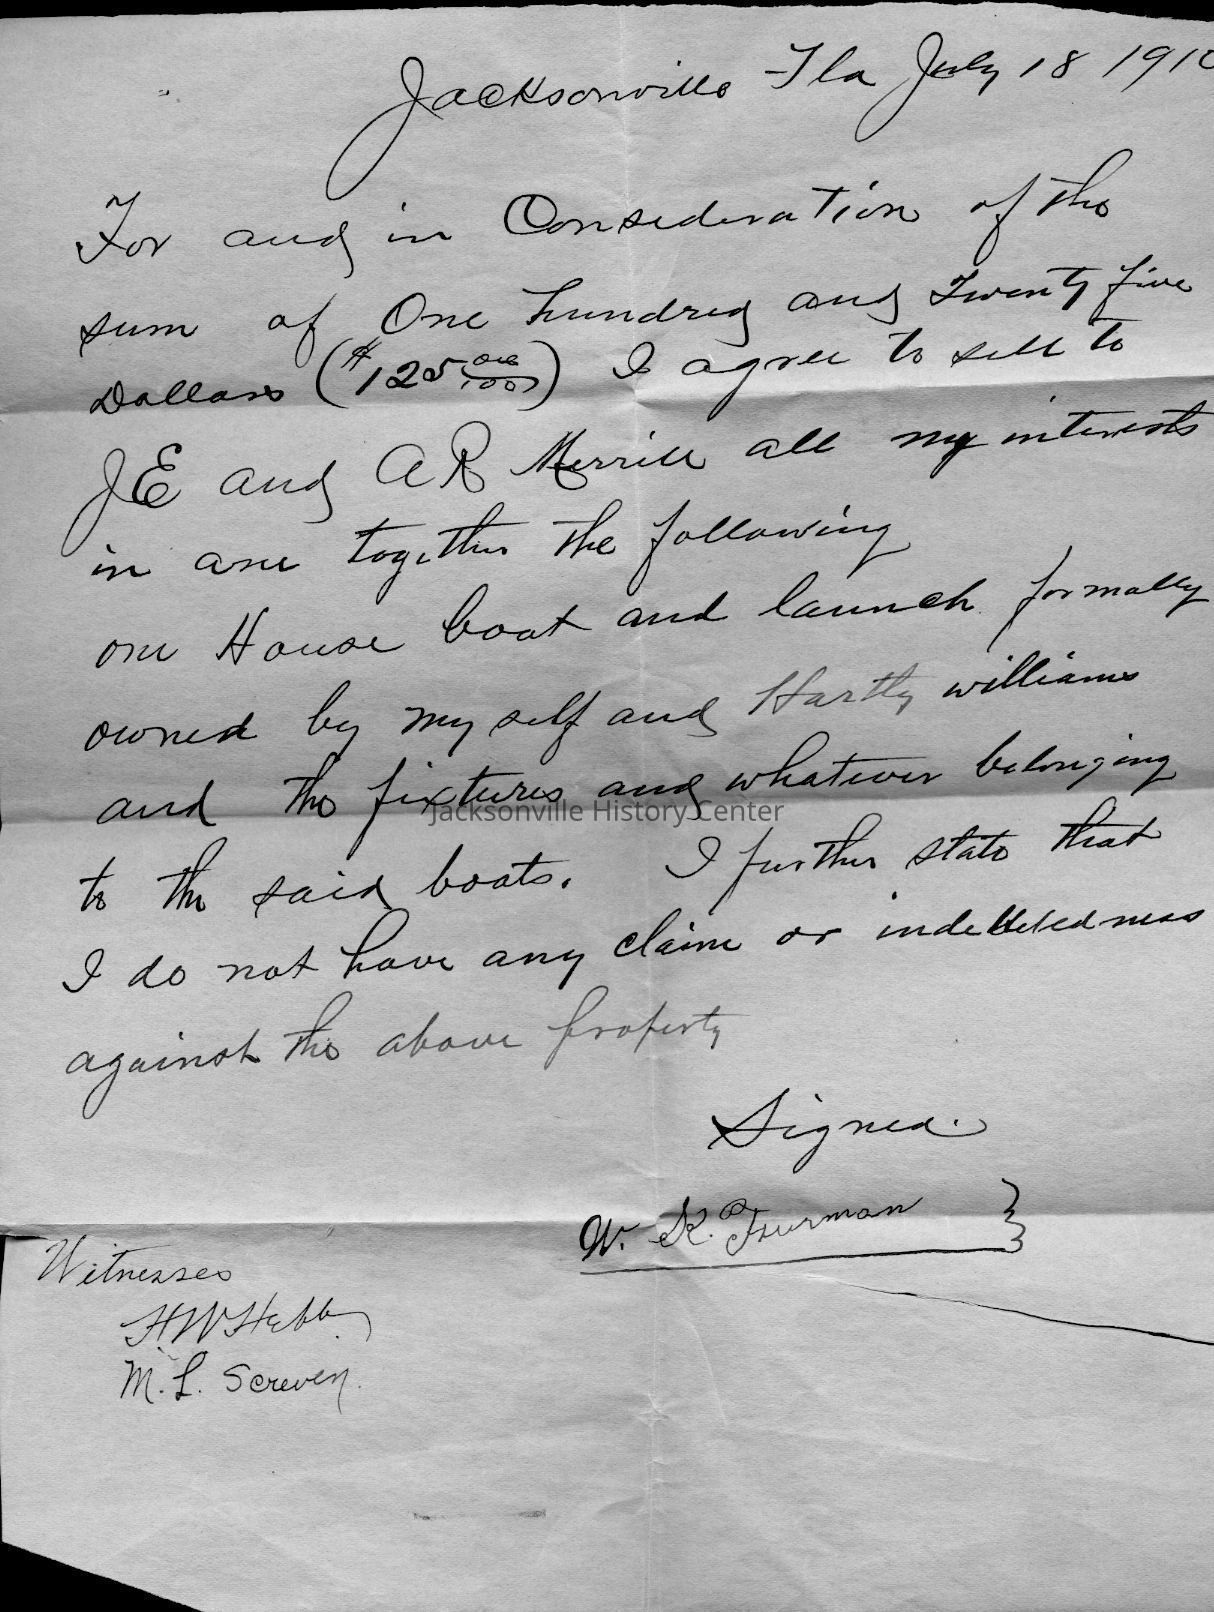 Jacksonville Fla July 18 1910
For and in Consideration of the
sum of One hundred and Twenty five
Dollars ($125 oo/100) I agree to sell to
JE and AR Merrill all my interests
in are together the following
one House boat and launch formally
owned by my self and Hartly williams
and the fixtures and whatever belonging
Jacksonville History Center
to the said boats. I further state that
I do not have any claim or indebtedness
against the above property
Signed.
W. K. Furman
Witnesses
HW Hebb
M. L. Screven.